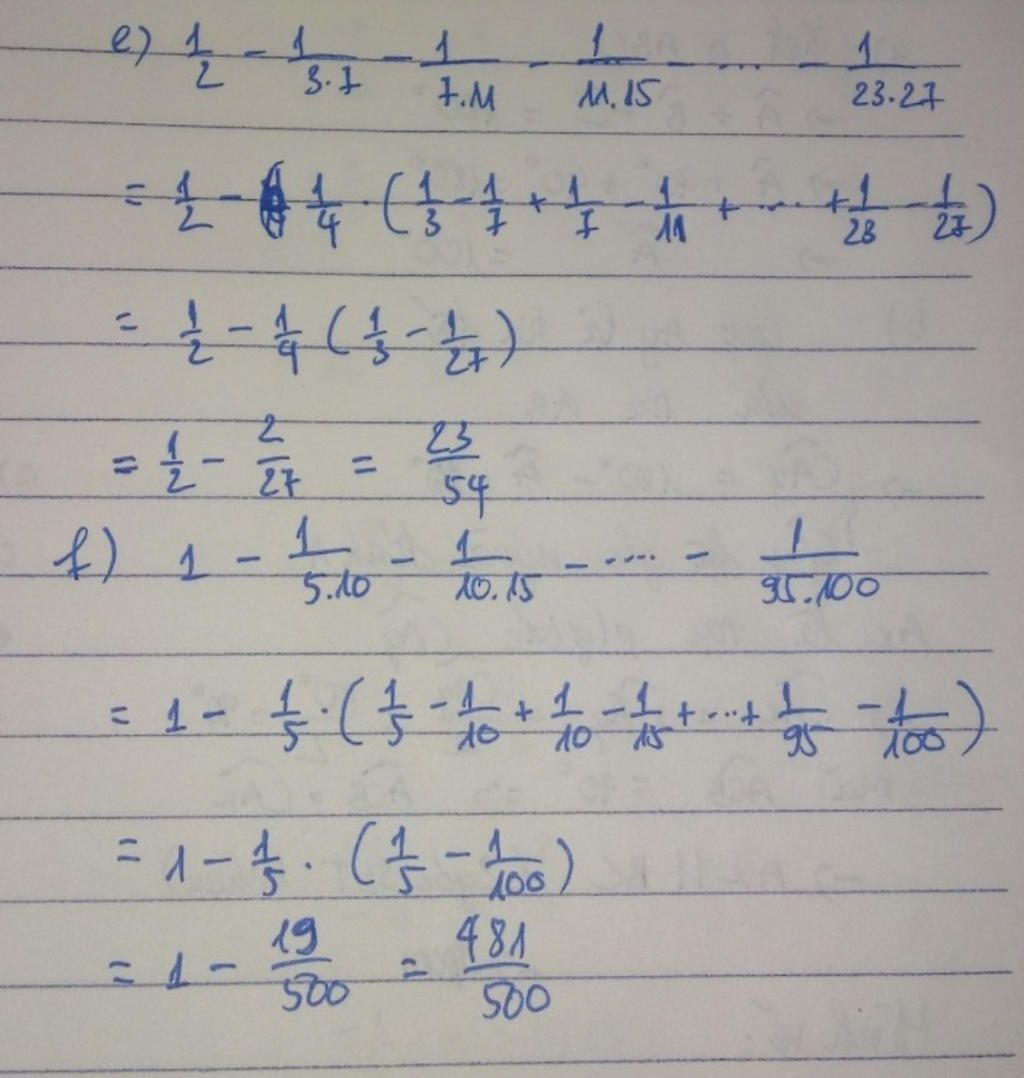 e) 1/2 - 1/3.7 - 1/7.11 - 1/11.15 - ... - 1/23.27
= 1/2 - 1/4 . (1/3 - 1/7 + 1/7 - 1/11 + ... + 1/23 - 1/27)
= 1/2 - 1/4 (1/3 - 1/27)
= 1/2 - 2/27 = 23/54
f) 1 - 1/5.10 - 1/10.15 - .... - 1/95.100
= 1 - 1/5 . (1/5 - 1/10 + 1/10 - 1/15 + ... + 1/95 - 1/100)
= 1 - 1/5 . (1/5 - 1/100)
= 1 - 19/500 = 481/500